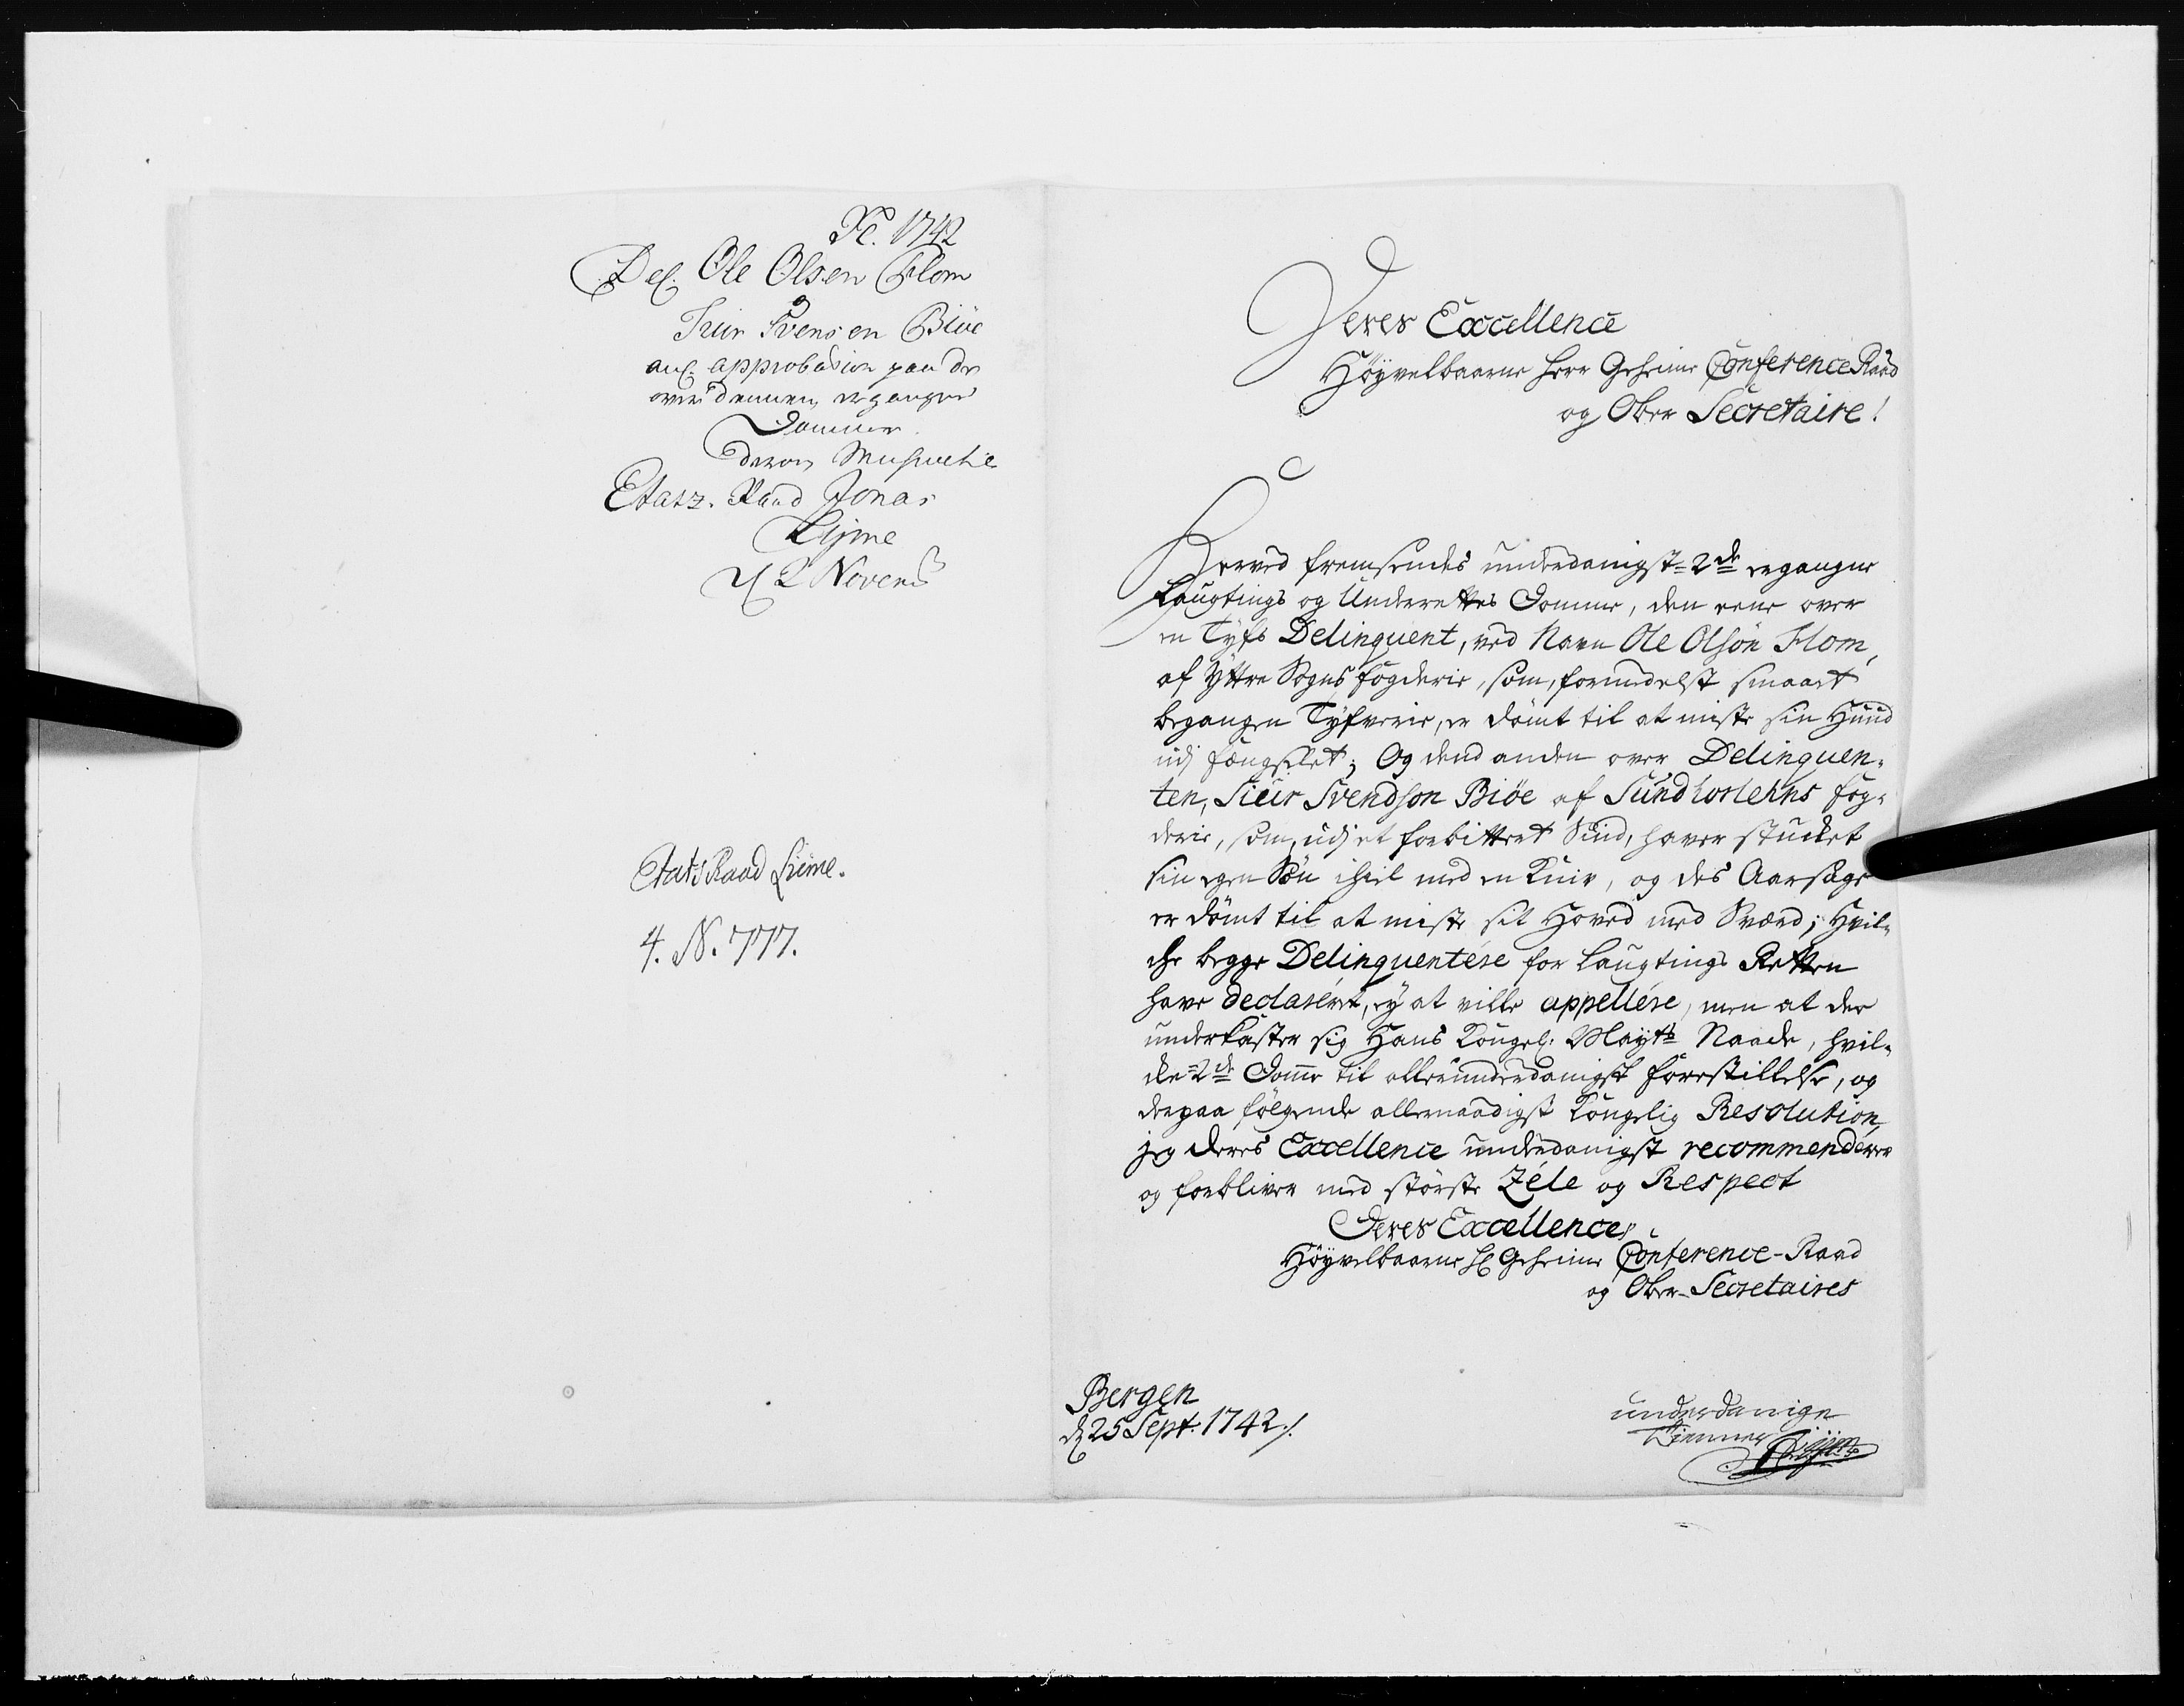 1742
Del. Ole Olsen Flom
og
Siur Svensen Biöe
anl. approbation paa de
over dennem ergangne
Domme
derom
Etatz-Raad Jonas
Lijme
2 Novemb
EtatsRaad Lieme.
4. N. 777.
Deres Excellence
Höyvelbaarne Herr Geheime Conference Raad
og Ober Secretaire!
Herved fremsendes underdanigst 2de ergangne
Laugtings og Underrettes Domme, den eene over
en Tyfs Delinquent, ved Navn Ole Olsön Flom,
af Yttre Sogns fogderie, som, formedelst smaat
begangen Tyfverie, er dömt til at miste sin Huud
udj fængslet; Og dend anden over Delinquen-
ten, Siur Svendson Biöe af Sundhorlehns fog-
derie, som, udj et forbittert Sind, haver stucket
sin egen Sön ihiel med en Kniv, og des Aarsage
er dömt til at miste sit Hoved med Sværd; Hvil-
che begge Delinquentere for Laugtings Retten
have declareret, ey at ville appellere, men at de
underkaster sig Hans Kongel. Mayts Naade, hvil-
cke 2de Domme til allerunderdanigst forestillelse, og
derpaa fölgende allernaadigst Kongelig Resolution,
jeg Deres Excellence underdanigst recommenderer
og forbliver med störste Zéle og Respect
Deres Excellences
Höyvelbaarne Hr Geheime Conference-Raad
og Ober-Secretaires
Bergen
d 25 Sept. 1742 /.
underdanige
Tienner